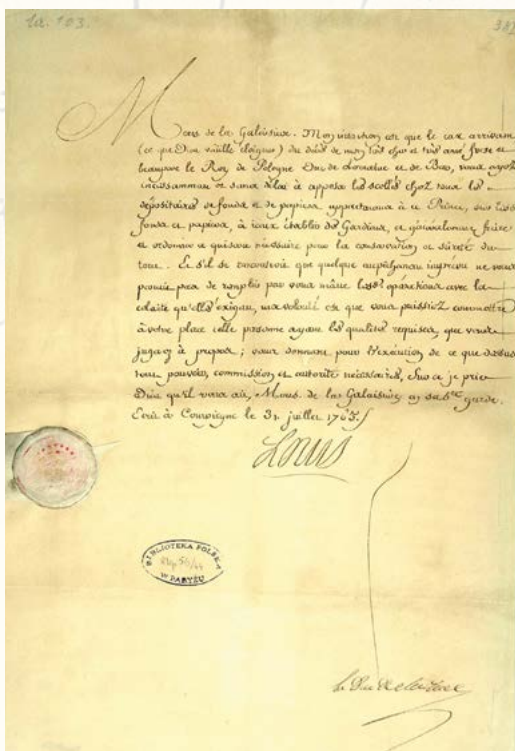 La. 103.
387
Mons de la Galaisiere. Mon intention est que le cas arrivant
(ce que Dieu veüille éloigner) du décès de mon très cher et très amé frere et
beaupere le Roy de Pologne Duc de Lorraine et de Bar, vous ayez
incessamment et sans délai à apposer les scellés chez tous les
dépositaires de fonds et de papiers appartenans à ce Prince, sur lesd.
fonds et papiers, à iceux établir des Gardiens, et généralement faire
et ordonner ce qui sera nécessaire pour la conservation et sûreté du
tout. Et s'il se trouvoit que quelque empêchement imprévu ne vous
permit pas de remplir par vous même lesd. opérations avec la
célérité qu'elles exigent, ma volonté est que vous puissiez commettre
à votre place telle personne ayant les qualités requises, que vous
jugerez à propos; vous donnant pour l'exécution de ce que dessus
tout pouvoir, commission et autorité nécessaires, Sur ce je prie
Dieu qu'il vous ait, Mons. de la Galaisiere en sa Ste garde.
Ecrit à Compiegne le 31 juillet 1765.
Louis
BIBLIOTEKA POLSKA
W PARYŻU
le Duc de